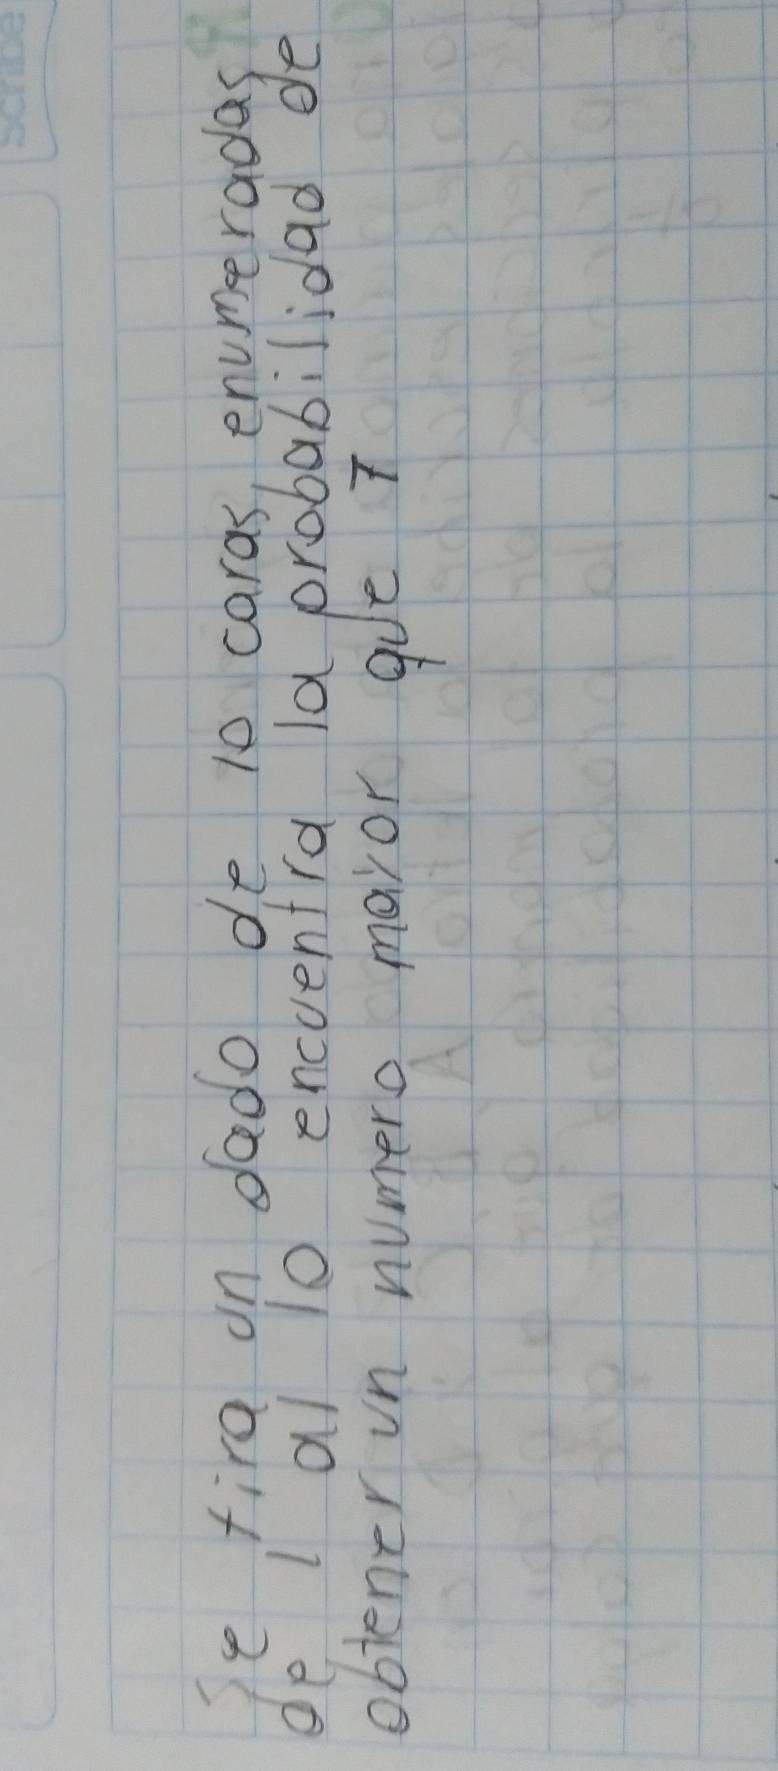 Se tira un dado de 10 caras, enumeradas
de 1 al 10 encuentra la probabilidad de
obtener un numero mayor que 7
Scribe